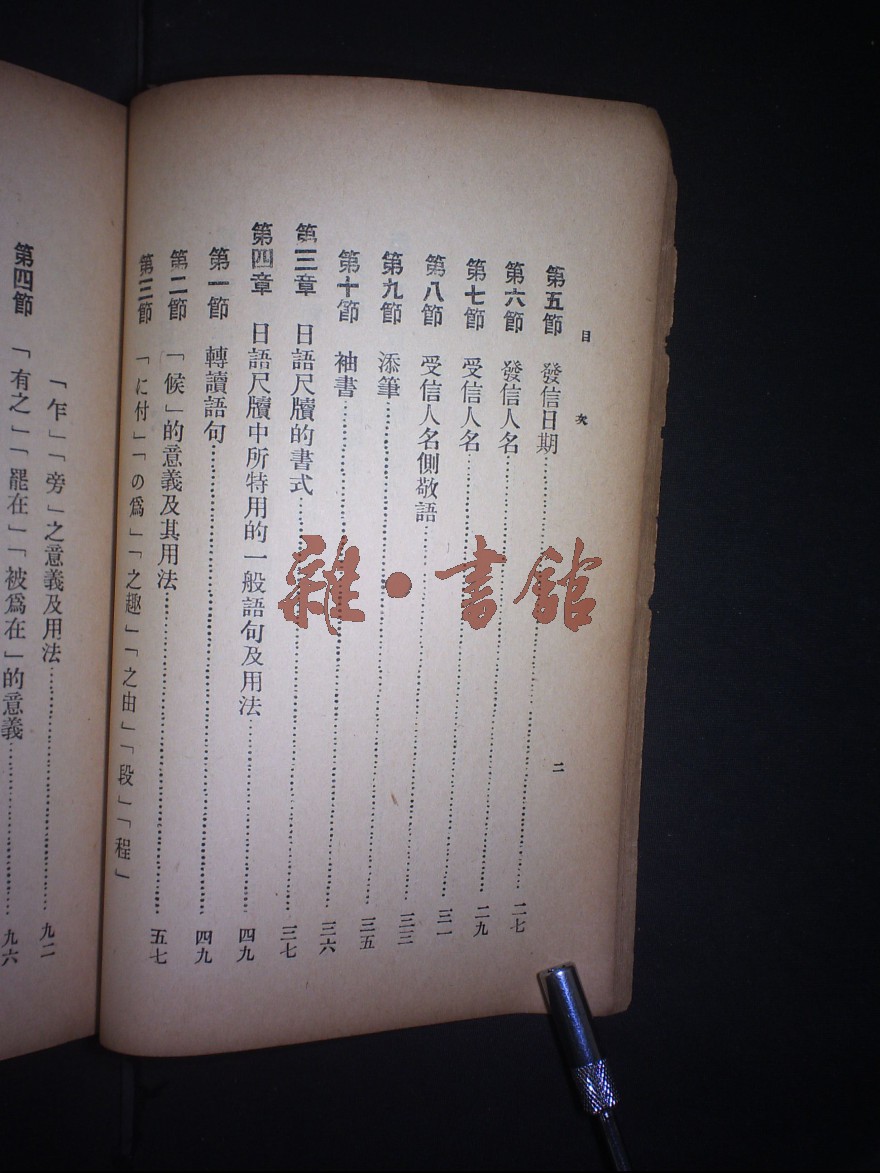 目次
二
第五節 發信日期……二七
第六節 發信人名……二九
第七節 受信人名……三一
第八節 受信人名側敬語……三三
第九節 添筆……三五
第十節 袖書……三六
第三章 日語尺牘的書式……三七
第四章 日語尺牘中所特用的一般語句及用法……四九
第一節 轉讀語句……四九
第二節 「候」的意義及其用法……五七
第三節 「に付」「の爲」「之趣」「之由」「段」「程」
「乍」「旁」之意義及用法……九二
第四節 「有之」「罷在」「被爲在」的意義……九六
雜·書館